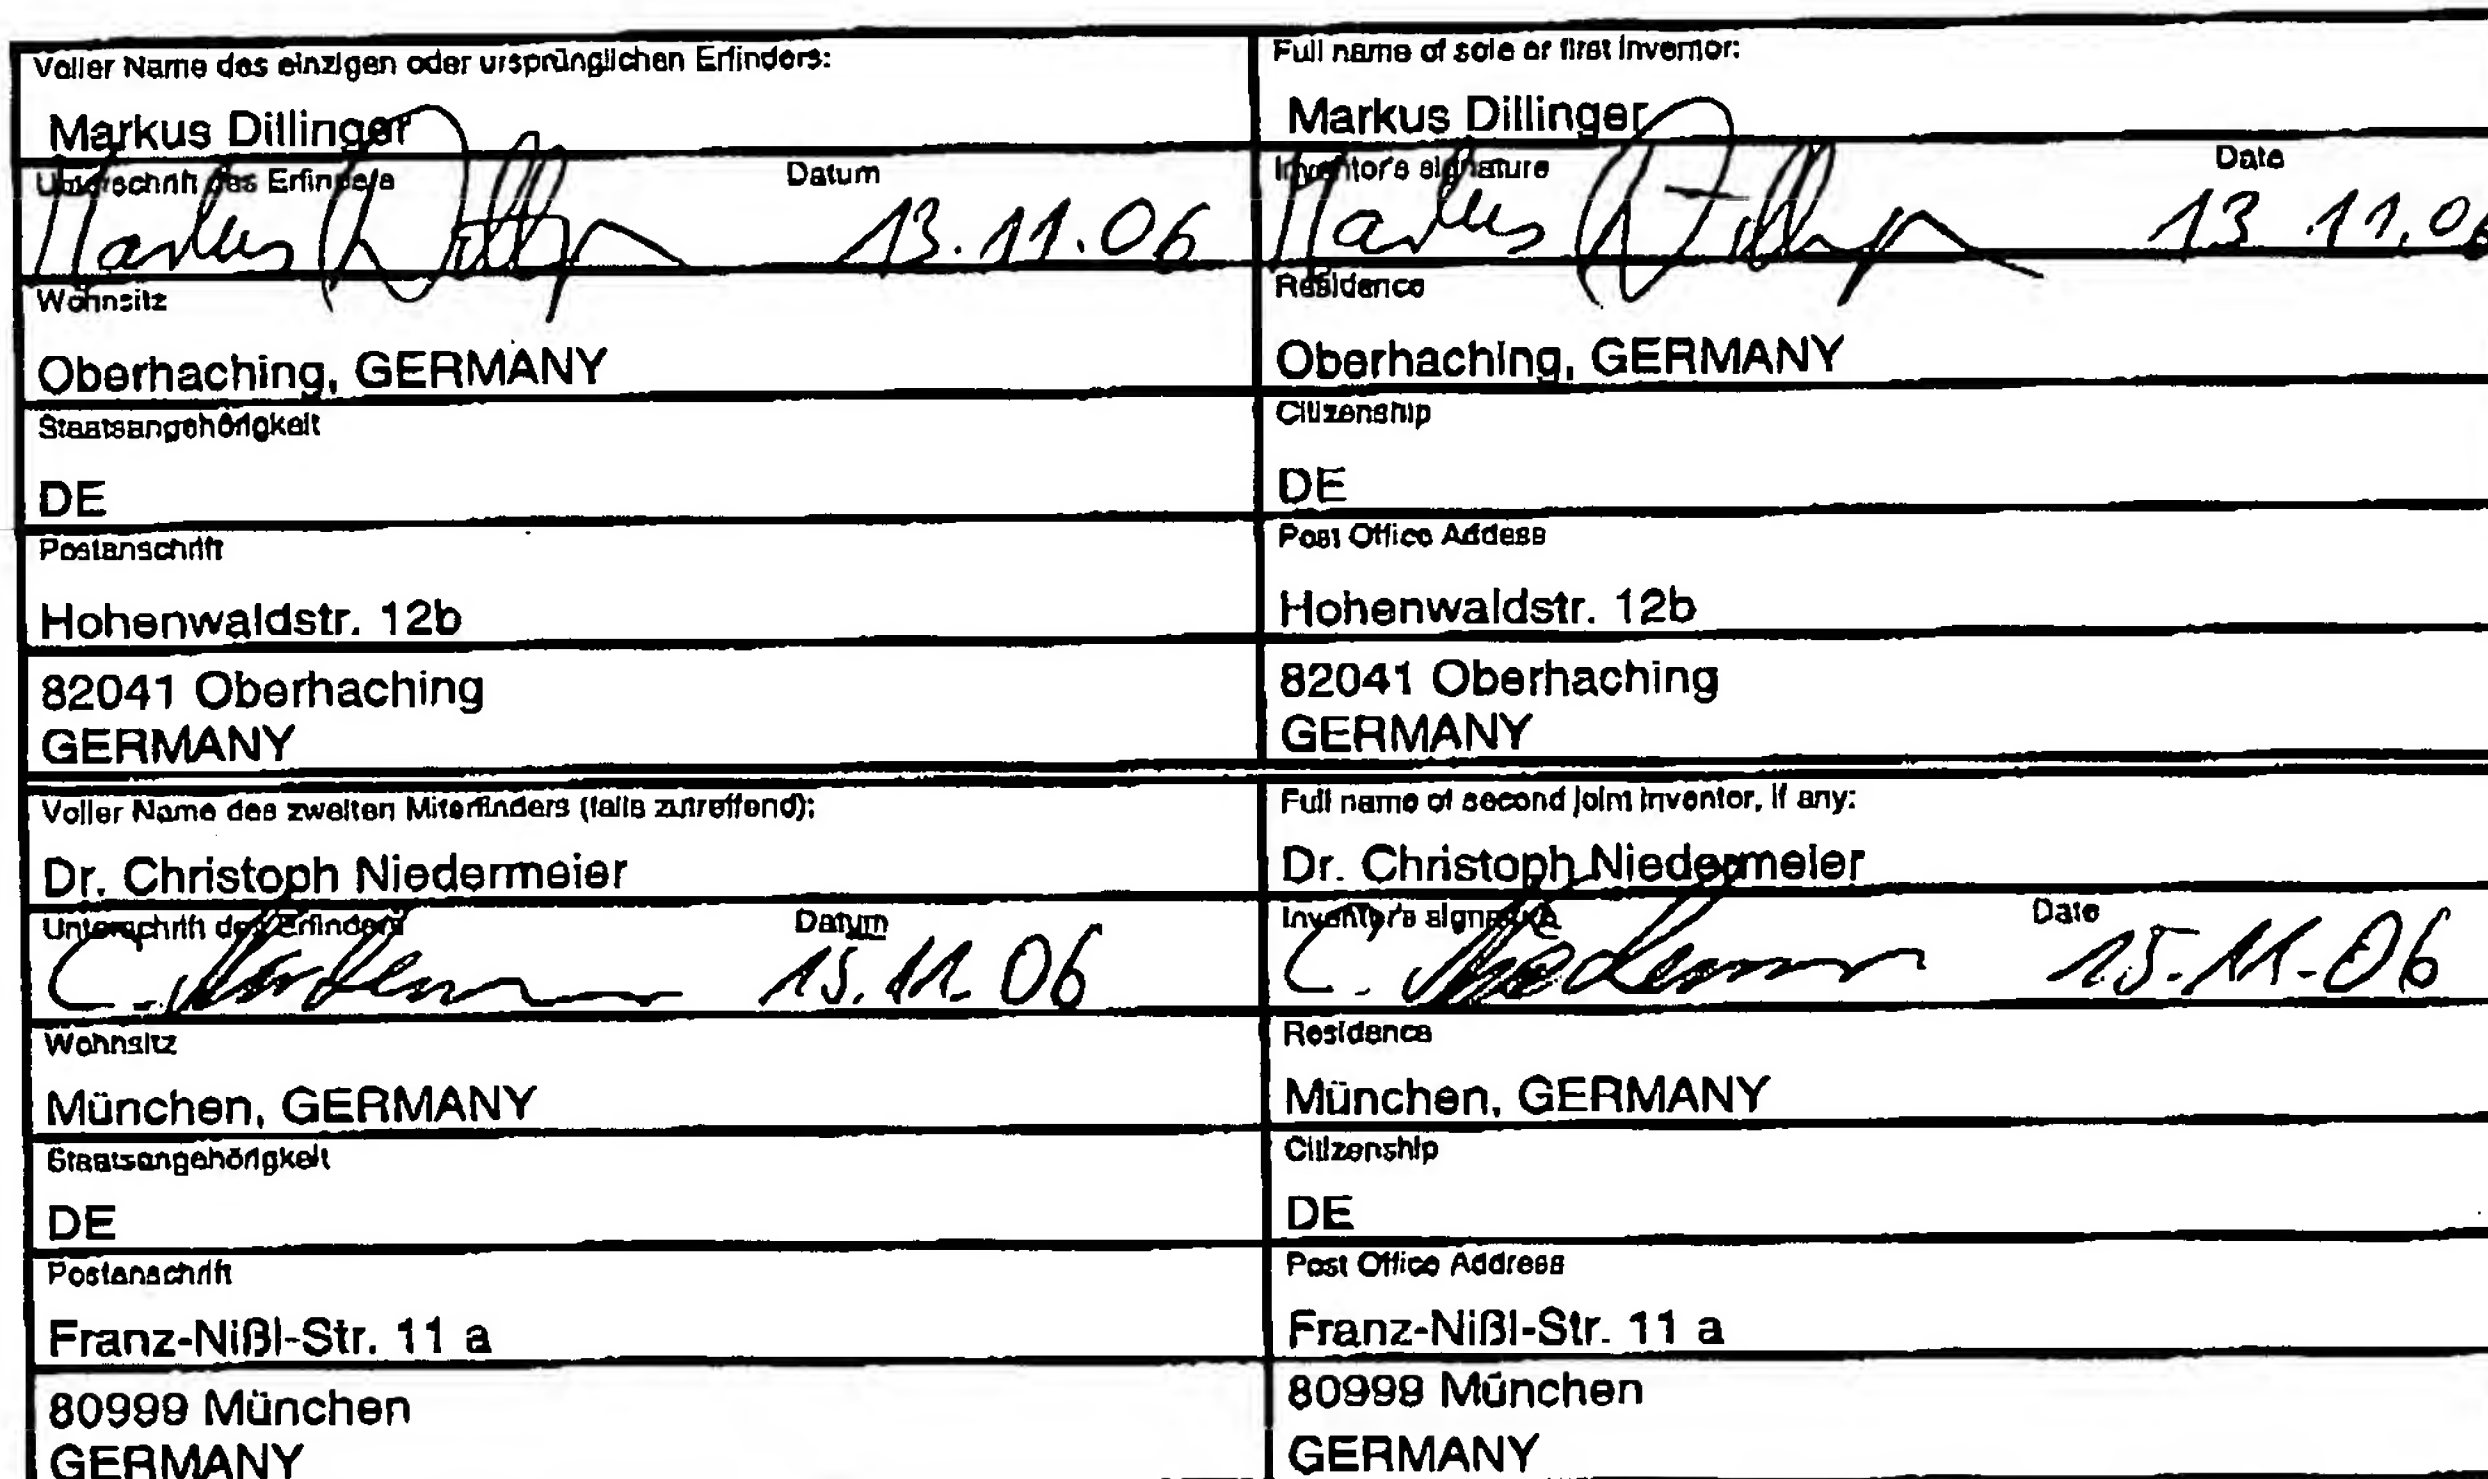 Voller Name des einzigen oder ursprünglichen Erfinders:
Markus Dillinger
Unterschrift des Erfinders Datum
Markus Dillinger 13.11.06
Wohnsitz
Oberhaching, GERMANY
Staatsangehörigkeit
DE
Postanschrift
Hohenwaldstr. 12b
82041 Oberhaching
GERMANY
Voller Name des zweiten Miterfinders (falls zutreffend):
Dr. Christoph Niedermeier
Unterschrift des Erfinders Datum
C. 15.11.06
Wohnsitz
München, GERMANY
Staatsangehörigkeit
DE
Postanschrift
Franz-Nißl-Str. 11 a
80999 München
GERMANY
Full name of sole or first inventor:
Markus Dillinger
Inventor's signature Date
Markus Dillinger 13 11.06
Residence
Oberhaching, GERMANY
Citizenship
DE
Post Office Addess
Hohenwaldstr. 12b
82041 Oberhaching
GERMANY
Full name of second joint inventor, if any:
Dr. Christoph Niedermeier
Inventor's signature Date
C. 15.11.06
Residence
München, GERMANY
Citizenship
DE
Post Office Address
Franz-Nißl-Str. 11 a
80999 München
GERMANY